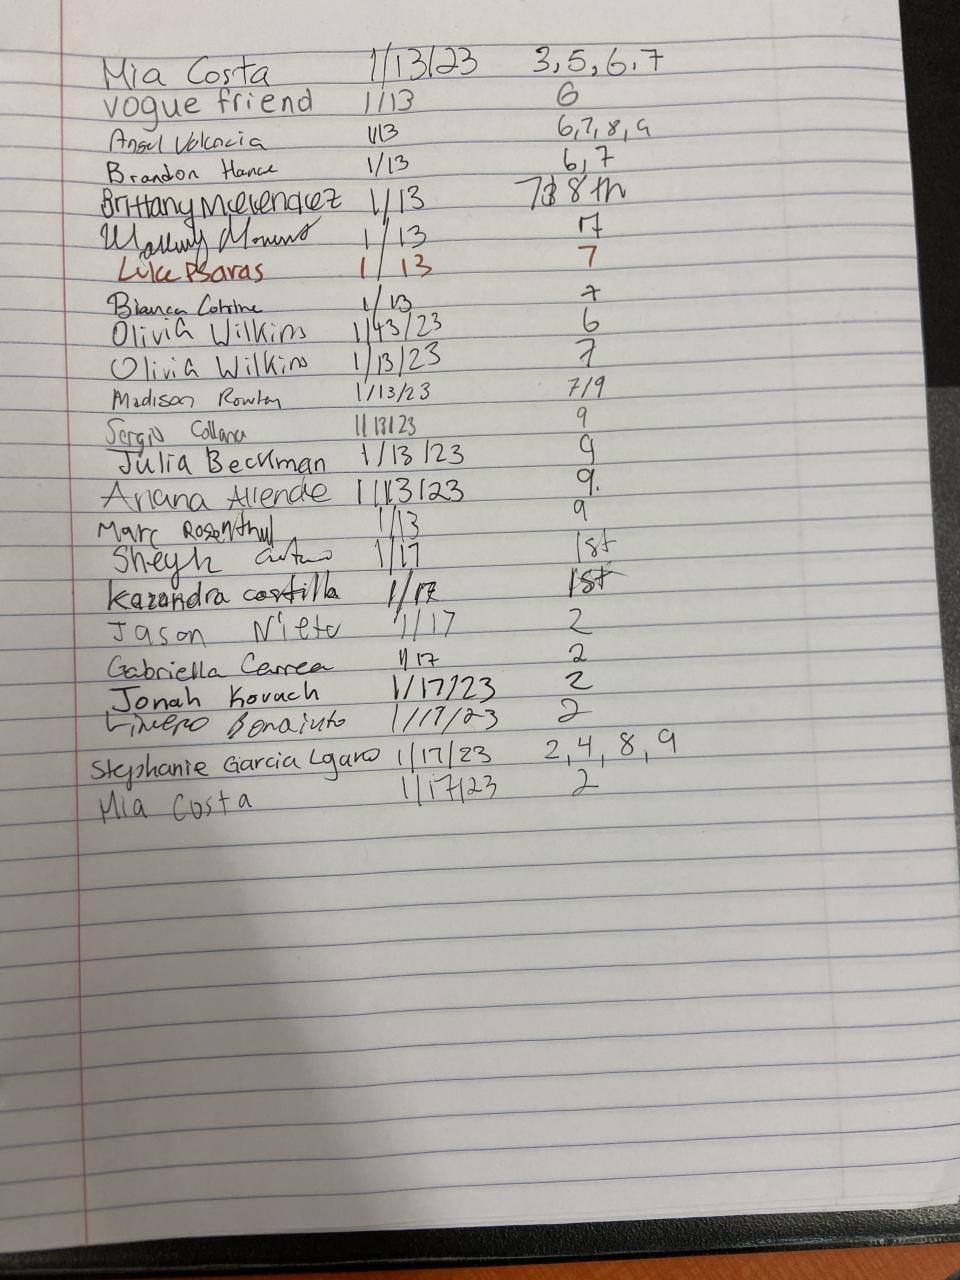 Mia Costa 1/13/23 3, 5, 6, 7
vogue friend 1/13 6
Angel Valencia 1/13 6, 7, 8, 9
Brandon Hance 1/13 6, 7
Brittany 1/13 7& 8th
1/13 7
Luke Psaras 1/13 7
Bianca 1/13 7
Olivia Wilkins 1/13/23 6
Olivia Wilkins 1/13/23 7
Madison Rowley 1/13/23 7/9
Sergio 1/13/23 9
Julia Beckman 1/13/23 9
Ariana Allende 1/13/23 9.
Marc Rosenthal 1/13 9
Sheyla 1/17 1st
Kazandra castilla 1/17 1st
Jason Nieto 1/17 2
Gabriella Correa 1/17 2
Jonah Kovach 1/17/23 2
Bonaiuto 1/17/23 2
Stephanie Garcia 1/17/23 2, 4, 8, 9
Mia Costa 1/17/23 2